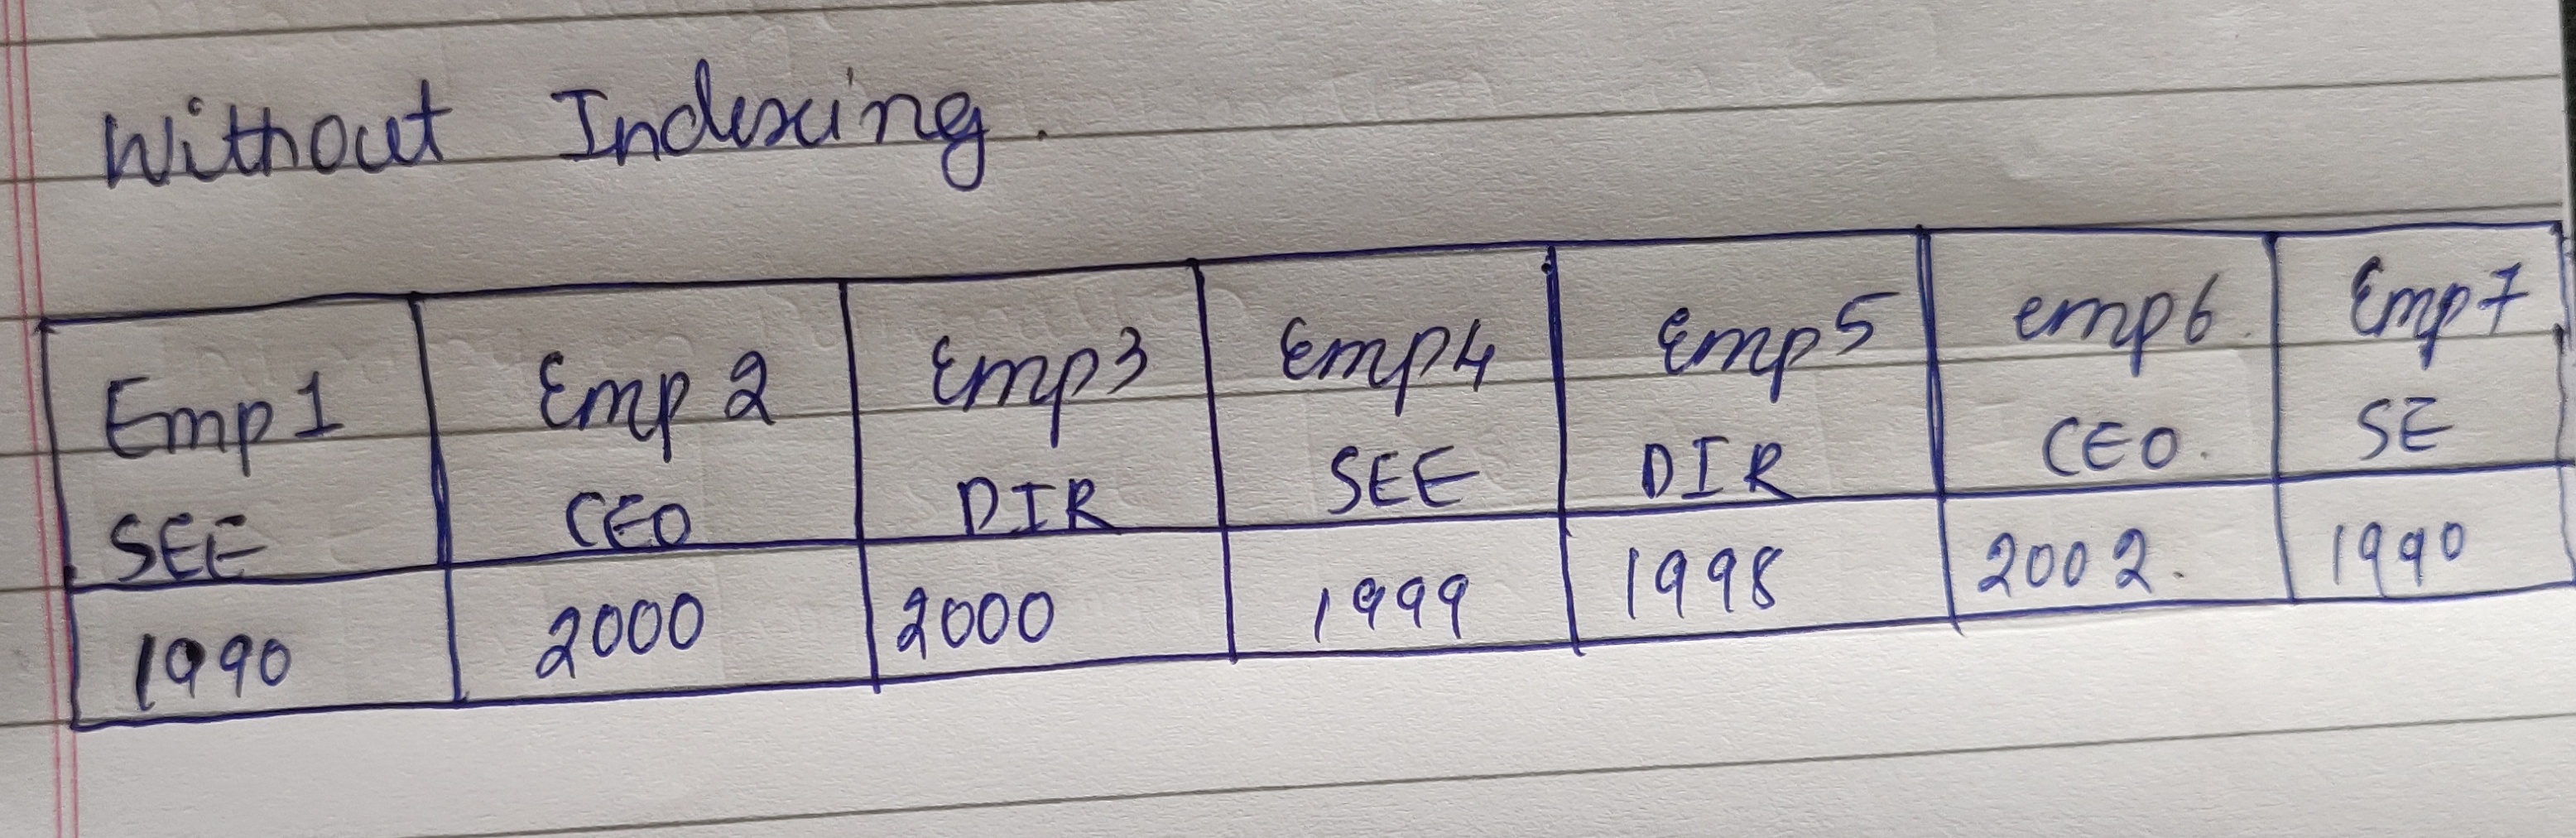 Without Indexing.
Emp 1 Emp 2 Emp3 Emp4 Emp5 emp6. Emp7
SEE CEO DIR SEE DIR CEO. SE
1990 2000 2000 1999 1998 2002. 1990